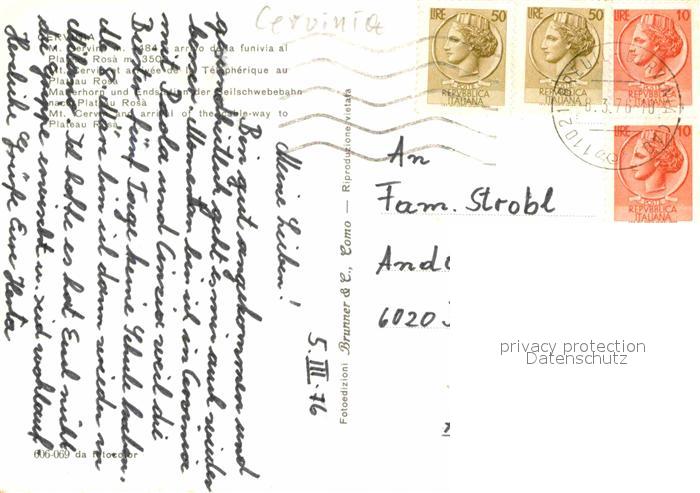 Cervinia
CERVINIA
M. Cervino m. 4484 arrivo della funivia al
Plateau Rosà m. 3500
Mt. Cervin et arrivée de la Téléphérique au
Plateau Rosà
Matterhorn und Endstation der Seilschwebebahn
nach Plateau Rosà
Mt. Cervin and arrival of the cable-way to
Plateau Rosà
5. III. 76
Meine Lieben!
Bin gut angekommen und
gesundheitlich geht es mir auch wieder
besser. Momentan bin ich in Cervinia
mit Paola und Cinzia weil die
Beiden fünf Tage keine Schule haben.
Ab bin ich dann wieder in
Ich hoffe es hat Euch nicht
die Grippe erwischt u. seid wohlauf.
Herzliche Grüße Eure Herta
606-069 da fotocolor
Fotoedizioni Brunner & C., Como — Riproduzione vietata
LIRE 50
POSTE
REPVBBLICA
ITALIANA
LIRE 50
POSTE
REPVBBLICA
ITALIANA
LIRE 10
REPVBBLICA
ITALIANA
LIRE 10
POSTE
REPVBBLICA
ITALIANA
BREUIL CERVINIA
8.3.76
11021
An
Fam. Strobl
And
6020
privacy protection
Datenschutz